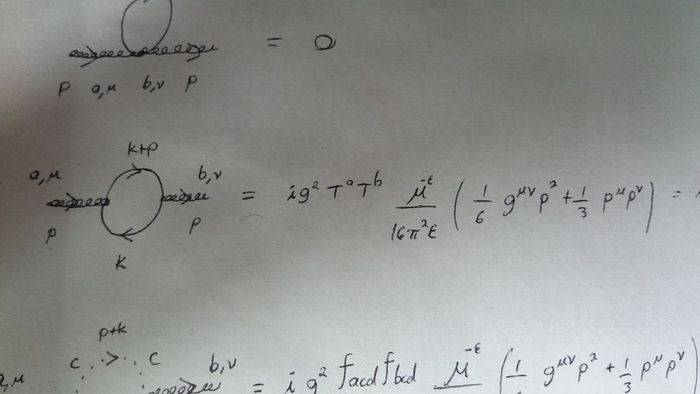 = 0
p a,μ b,ν p
k+p
a,μ b,ν
= i g² Tᵃ Tᵇ μ^-ε / 16π²ε ( 1/6 g^μν p² + 1/3 p^μ p^ν ) =
p p
k
p+k
c > c b,ν
= i g² f_acd f_bcd μ^-ε ( 1/ g^μν p² + 1/3 p^μ p^ν )